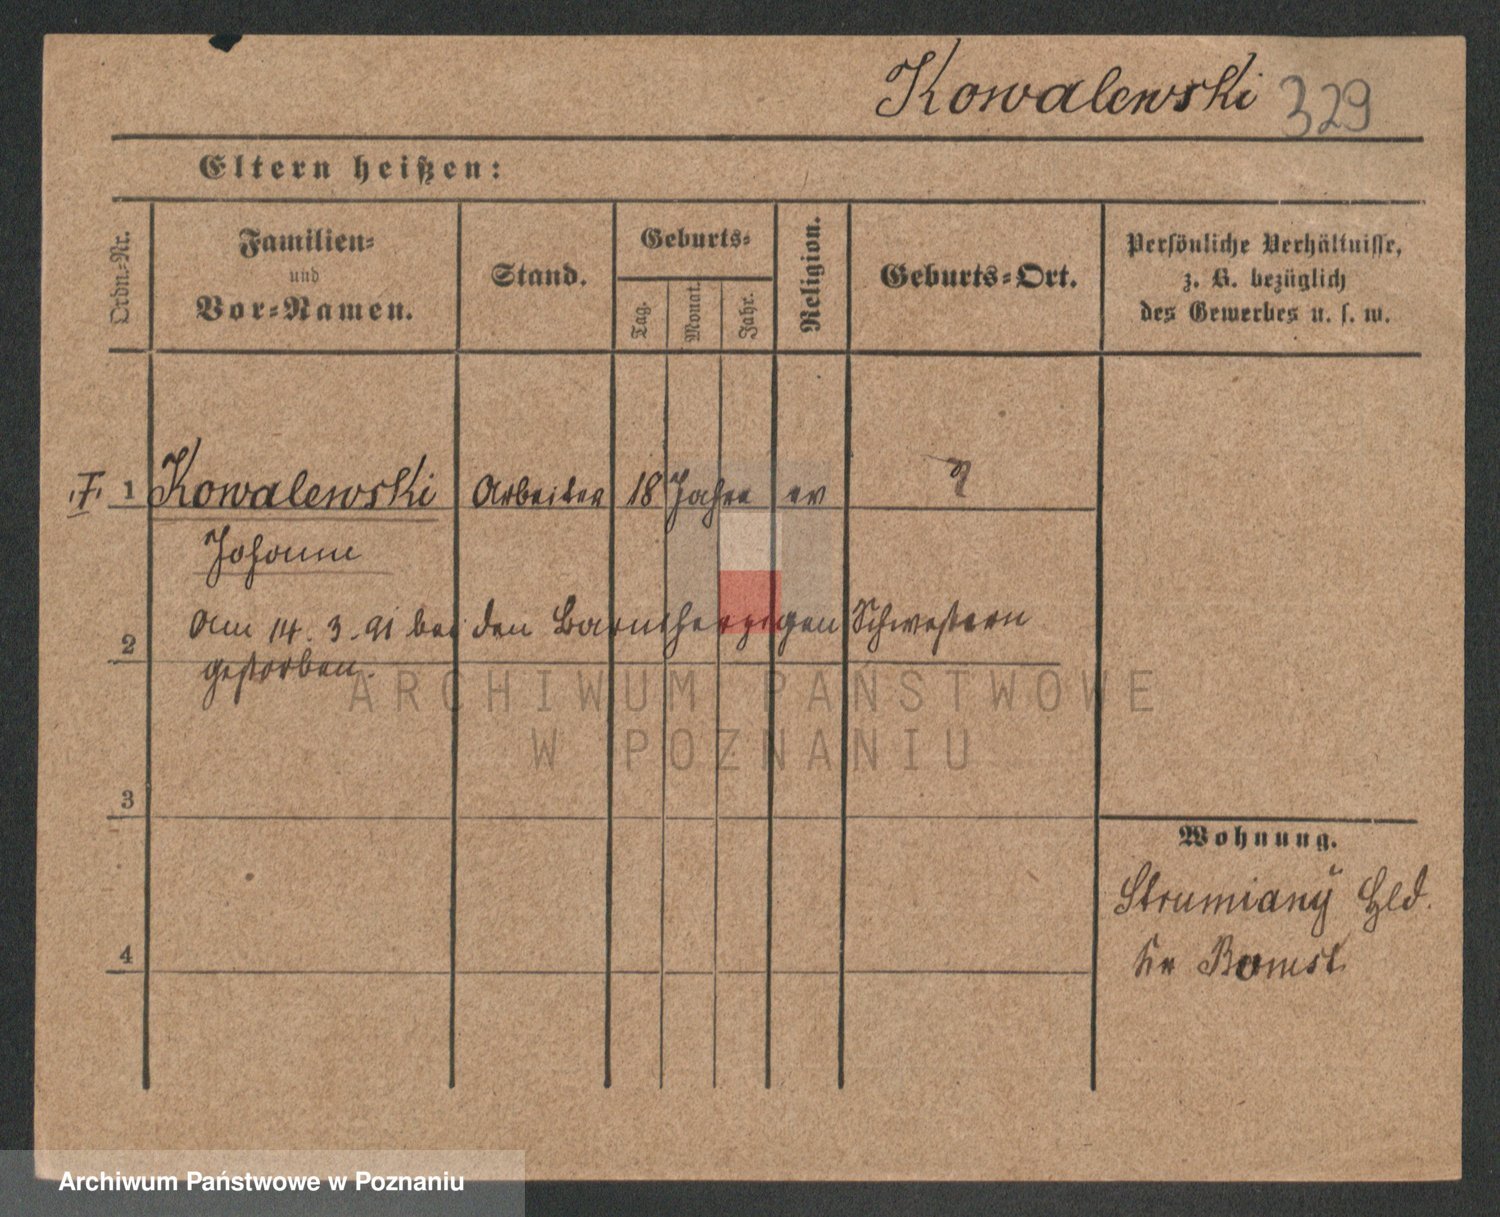 Kowalewski 329
Eltern heißen:
Ordn.-Nr.
Familien-
und
Vor-Namen.
Stand.
Geburts-
Tag.
Monat.
Jahr.
Religion.
Geburts-Ort.
Persönliche Verhältnisse,
z. B. bezüglich
des Gewerbes u. s. w.
I. 1 Kowalewski Arbeiter 18 Jahre ev ?
Johann
2 Am 14. 3. 91 bei den Barmherzigen Schwestern
gestorben.
ARCHIWUM PAŃSTWOWE
W POZNANIU
3
Wohnung.
Strumiany Hld.
4
Kr Bomst
Archiwum Państwowe w Poznaniu